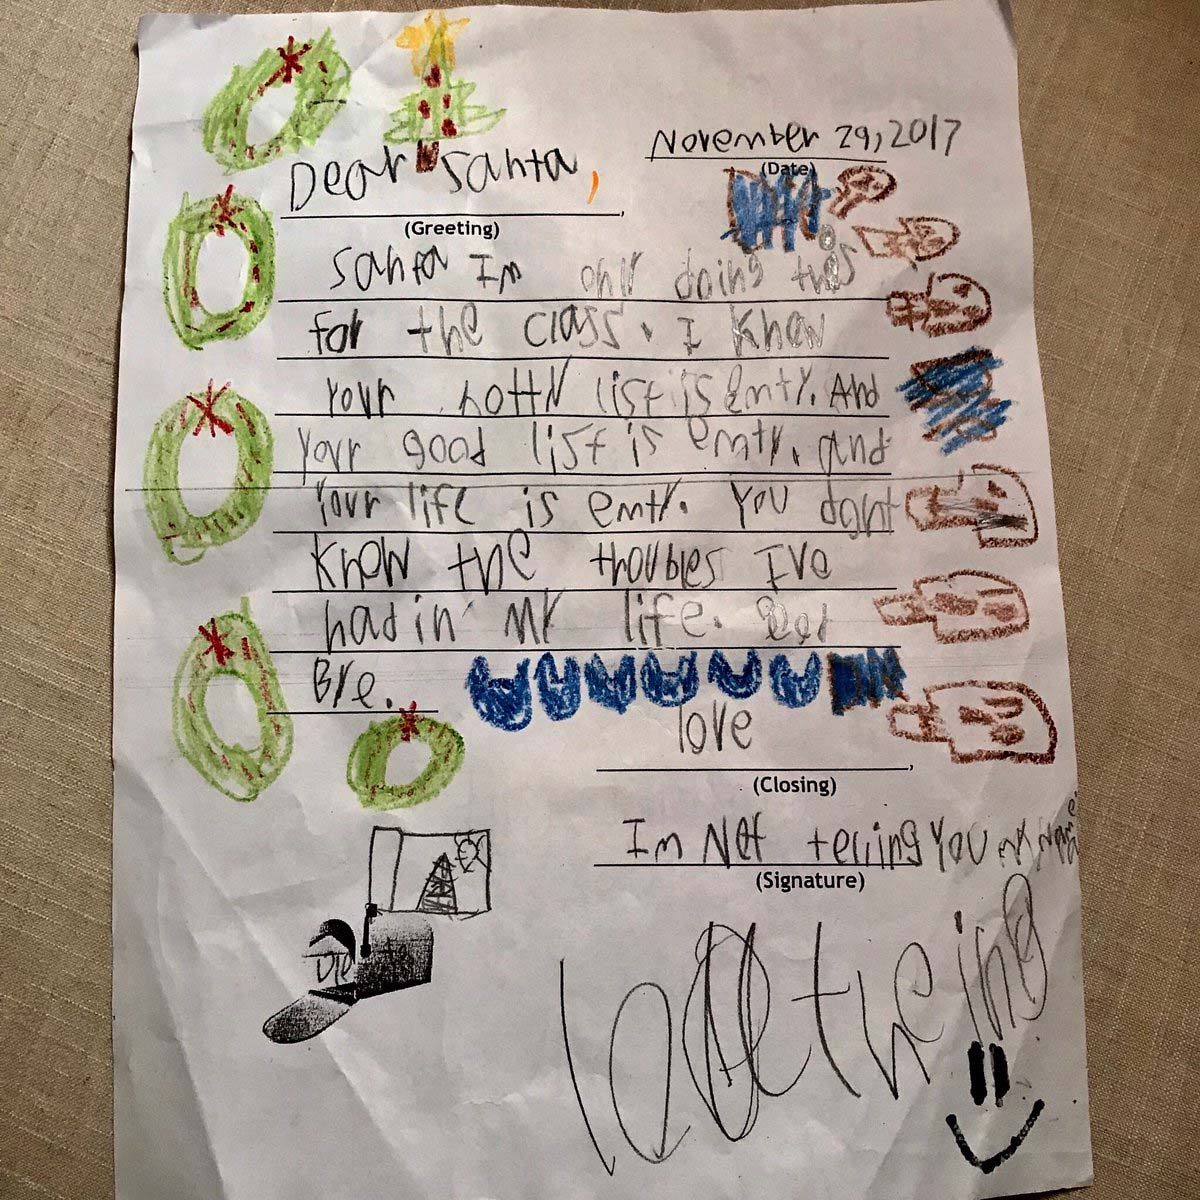 November 29, 2017
(Date)
Dear Santa,
(Greeting)
Santa Im only doing this
for the class. I Know
Your notty list is emty. And
your good list is emty. and
Your life is emty. You dont
Know the thoubles Ive
had in my life. God
Bye.
love
(Closing)
Im Not telling you my name
(Signature)